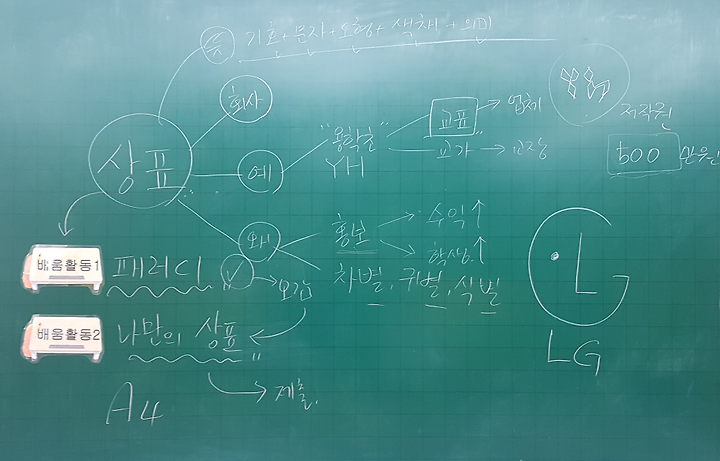 뜻 기호+문자+도형+색채+의미
회사
상표
예
"용학초"
YH
교표 → 업체
교가 → 교장
저작권
500 만원
왜
홍보
수익↑
학생↑
차별, 구별, 식별
배움활동1 패러디
모감
배움활동2 나만의 상표
제출.
A4
L
LG